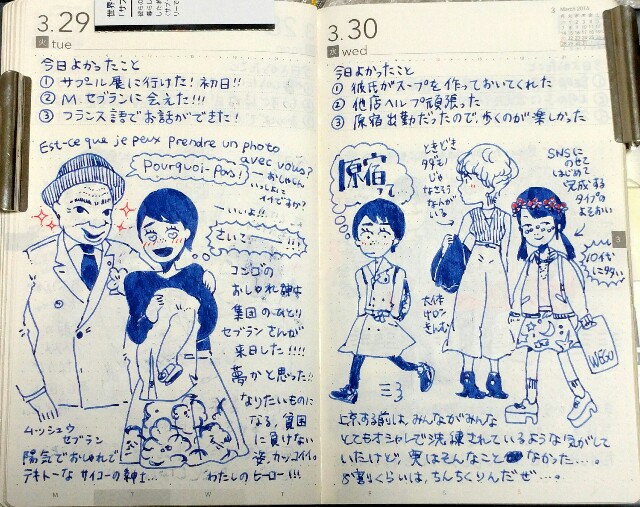 3.29
火 tue
今日よかったこと
① サプール展に行けた！初日!!
② M.セブランに会えた!!!
③ フランス語でお話ができた！
Est-ce que je peux prendre un photo
avec vous?
Pourquoi-Pas!
おしゃしん
いっしょに
イイですか？
いいよ!!
さいこー
コンゴの
おしゃれ紳士
集団のひとり
セブランさんが
来日した!!!!
夢かと思った!!
なりたいものに
なる、貧困
に負けない
姿、カッコイイ。
わたしのヒーロー!!!
ムッシュウ
セブラン
陽気でおしゃれで
テキトーな サイコーの紳士…
M T W T
3.30
水 wed
3 March 2016
今日よかったこと
① 彼氏がスープを作っておいてくれた
② 他店ヘルプ頑張った
③ 原宿出勤だったので、歩くのが楽しかった
原宿
って…
ときどき
モデル
じゃ
なさそう
なんが
いる
SNSに
のせて
はじめて
完成する
タイプの
よそおい
10代
にタタい
WEGO
3
上京する前は、みんながみんな
とてもオシャレで洗練されているような気がして
いたけど、実はそんなこと なかった…。
8割くらいは、ちんちくりんだぜ…。
F S S M